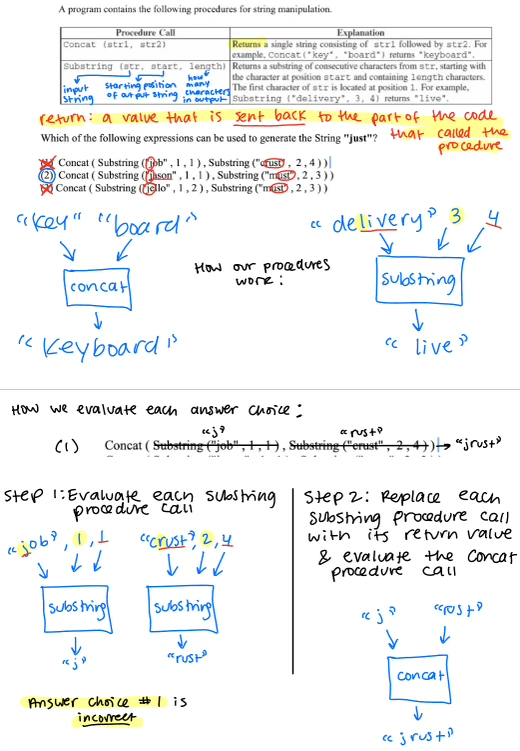 A program contains the following procedures for string manipulation.
Procedure Call Explanation
Concat (str1, str2) Returns a single string consisting of str1 followed by str2. For
example, Concat("key", "board") returns "keyboard".
Substring (str, start, length) Returns a substring of consecutive characters from str, starting with
the character at position start and containing length characters.
The first character of str is located at position 1. For example,
Substring ("delivery", 3, 4) returns "live".
input string
starting position of output string
how many characters in output
return: a value that is sent back to the part of the code
that called the procedure
Which of the following expressions can be used to generate the String "just"?
(1) Concat ( Substring ("job" , 1 , 1 ) , Substring ("crust" , 2 , 4 ) )
(2) Concat ( Substring ("jason" , 1 , 1 ) , Substring ("must" , 2 , 3 ) )
(3) Concat ( Substring ("jello" , 1 , 2 ) , Substring ("must" , 2 , 3 ) )
"key" "board"
concat
"keyboard"
How our procedures
work:
"delivery" 3 4
substring
"live"
How we evaluate each answer choice:
"j" "rust"
(1) Concat ( Substring ("job" , 1 , 1 ) , Substring ("crust" , 2 , 4 ) ) → "jrust"
Step 1: Evaluate each substring
procedure call
"job", 1, 1 "crust", 2, 4
substring substring
"j" "rust"
Answer choice #1 is
incorrect
Step 2: Replace each
substring procedure call
with its return value
& evaluate the concat
procedure call
"j" "rust"
concat
"jrust"